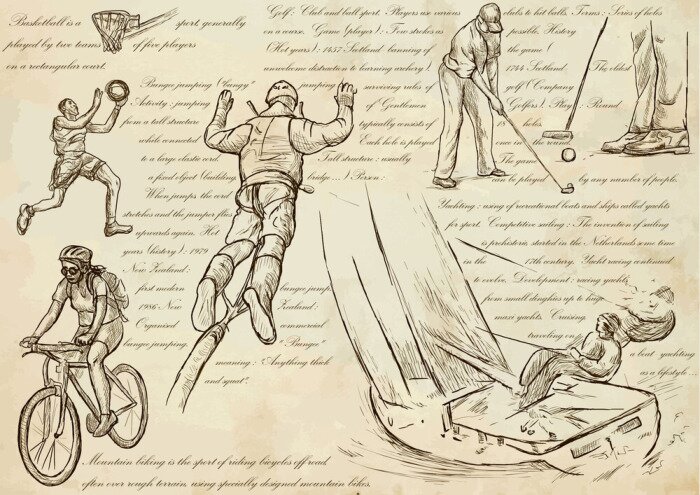 Basketball is a sport, generally
played by two teams of five players
on a rectangular court.
Golf : Club and ball sport. Players use various clubs to hit balls. Terms : Series of holes
on a course. Game (player) : Few strokes as possible. History
(Hot years) : 1457 Scotland (banning of the game (
unwelcome distraction to learning archery) 1744 Scotland. The oldest
surviving rules of golf (Company
of Gentlemen Golfers). Play : Round
typically consists of 18 holes.
Each hole is played once in the round.
The game
can be played by any number of people.
Bungee jumping ("Bungy" jumping)
Activity : jumping
from a tall structure
while connected
to a large elastic cord. Tall structure : usually
a fixed object (building, bridge ...) Person :
When jumps, the cord
stretches and the jumper flies
upwards again. Hot
years (history) : 1979
New Zealand : bungee jump.
first modern Zealand :
1986 New commercial
Organised "Bungee"
bungee jumping.
meaning : "Anything thick
and squat".
Yachting : using of recreational boats and ships called yachts
for sport. Competitive sailing : The invention of sailing
is prehistoric, started in the Netherlands some time
in the 17th century. Yacht racing continued
to evolve. Development : racing yachts,
from small dinghies up to huge
maxi yachts. Cruising,
traveling on a boat yachting
as a lifestyle ...
Mountain biking is the sport of riding bicycles off-road,
often over rough terrain, using specially designed mountain bikes.